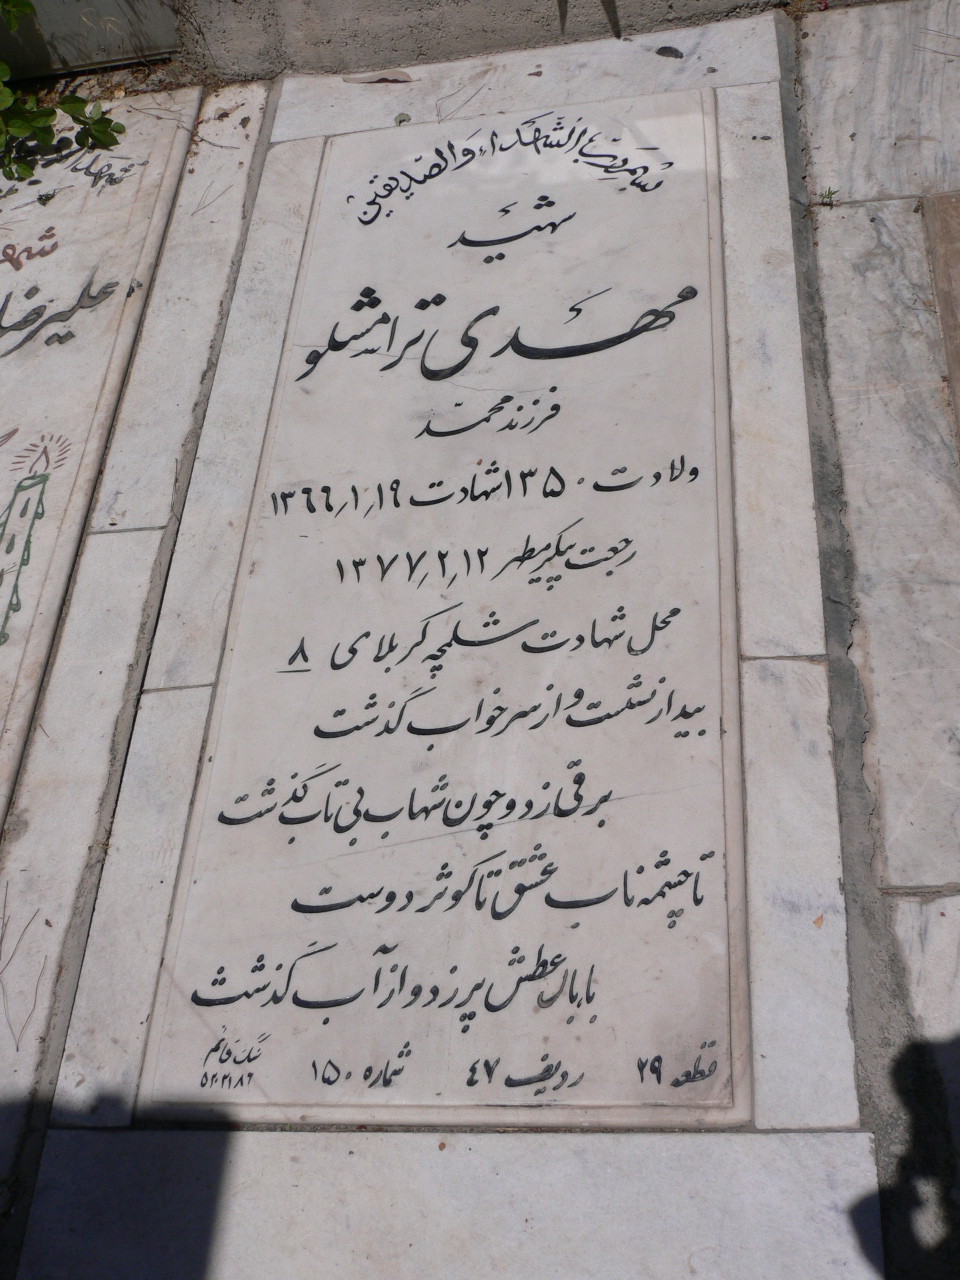 بسم رب الشهداء والصدیقین
شهید
مهدی ترامشلو
فرزند محمد
ولادت ۱۳۵۰ شهادت ۱۳۶۶/۱/۱۹
رجعت پیکر مطهر ۱۳۷۷/۲/۱۲
محل شهادت شلمچه کربلای ۸
بیدار نشست و از سر خواب گذشت
برقی زد و چون شهاب بی تاب گذشت
تا چشمه ناب عشق تا کوثر دوست
با بال عطش پر زد و از آب گذشت
قطعه ۲۹ ردیف ۴۷ شماره ۱۵۰
سنگ قائم
۵۲۰۲۱۸۶
علیرضا